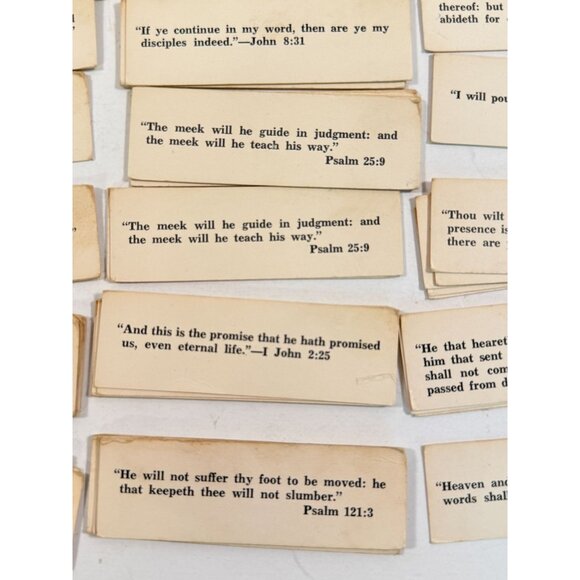 "If ye continue in my word, then are ye my
disciples indeed."—John 8:31
"The meek will he guide in judgment: and
the meek will he teach his way."
Psalm 25:9
"The meek will he guide in judgment: and
the meek will he teach his way."
Psalm 25:9
"And this is the promise that he hath promised
us, even eternal life."—I John 2:25
"He will not suffer thy foot to be moved: he
that keepeth thee will not slumber."
Psalm 121:3
thereof: but
abideth for
"I will
"Thou wilt
presence is
there are
"He that
him that sent
shall not
passed from
"Heaven and
words